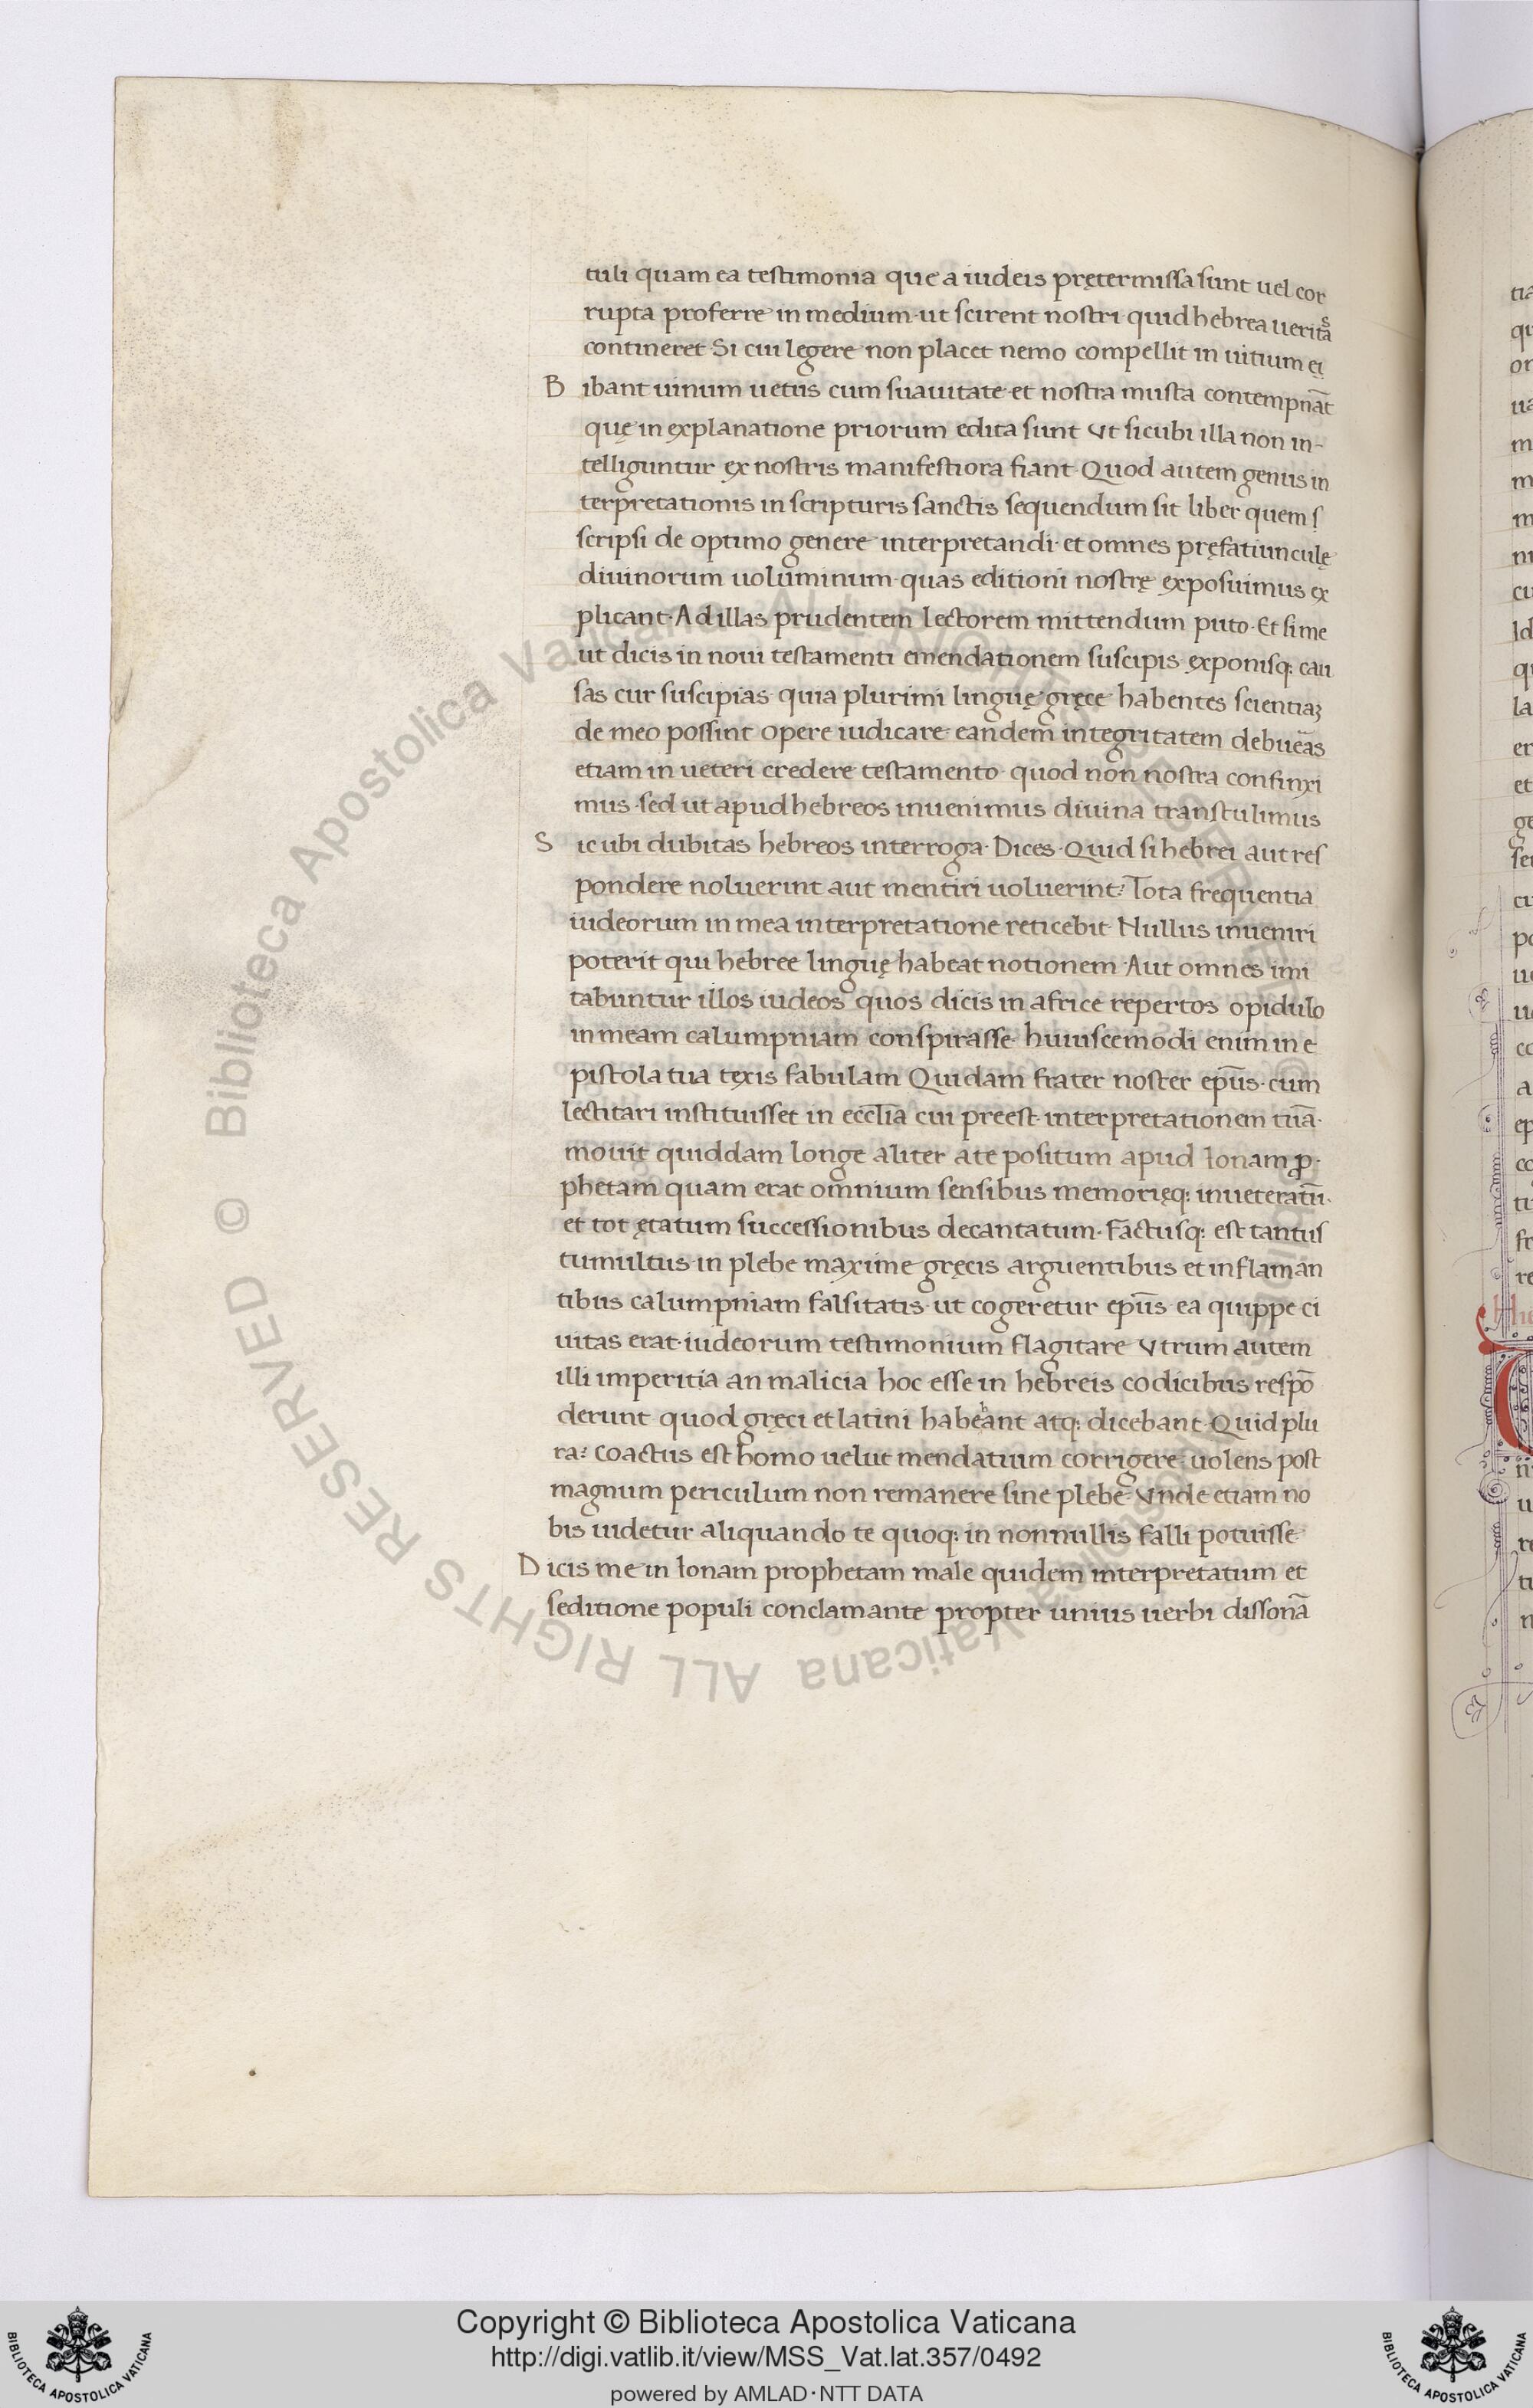 tuli quam ea testimonia que a iudeis prętermissa sunt uel cor
rupta proferre in medium· ut scirent nostri quid hebrea ueritas
contineret· Si cui legere non placet nemo compellit in uitium ei
Bibant uinum uetus cum suauitate· et nostra musta contempnāt
quę in explanatione priorum edita sunt Vt sicubi illa non in-
telliguntur ex nostris manifestiora fiant· Quod autem genus in
terpretationis in scripturis sanctis sequendum sit liber quem s
scripsi de optimo genere interpretandi· et omnes pręfatiunculę
diuinorum uoluminum· quas editioni nostrę exposuimus ex
plicant· Ad illas prudentem lectorem mittendum puto· Et si me
ut dicis in noui testamenti emendationem suscipis exponisq: cau
sas cur suscipias· quia plurimi linguę gręce habentes scientiaʒ
de meo possint opere iudicare eandem integritatem debueas
etiam in ueteri credere testamento· quod non nostra confinxi
mus· sed ut apud hebreos inuenimus diuina transtulimus
Sicubi dubitas hebreos interroga· Dices· Quid si hebrei aut res
pondere noluerint aut mentiri uoluerint? Tota frequentia
iudeorum in mea interpretatione reticebit Nullus inueniri
poterit qui hebree linguę habeat notionem· Aut omnes imi
tabuntur illos iudeos quos dicis in africe repertos opidulo
in meam calumpniam conspirasse huiuscemodi enim in e
pistola tua texis fabulam Quidam frater noster ep̄us· cum
lectitari instituisset in eccl̄ia cui preest· interpretationem tuā·
mouit quiddam longe aliter a te positum apud Ionam ꝓ·
phetam quam erat omnium sensibus memorięq: inueteratū·
et tot ętatum successionibus decantatum· Factusq: est tantus
tumultus in plebe maxime gręcis arguentibus et inflaman
tibus calumpniam falsitatis· ut cogeretur ep̄us· ea quippe ci
uitas erat· iudeorum testimonium flagitare Vtrum autem
illi imperitia an malicia hoc esse in hebreis codicibus respō
derunt quod gręci et latini habebant atq: dicebant· Quid plu
ra? Coactus est homo uelut mendatium corrigere uolens post
magnum periculum non remanere sine plebe· Vnde etiam no
bis uidetur aliquando te quoq: in nonnullis falli potuisse
Dicis me in Ionam prophetam male quidem interpretatum et
seditione populi conclamante propter unius uerbi dissonā
© Biblioteca Apostolica Vaticana ALL RIGHTS RESERVED
Copyright © Biblioteca Apostolica Vaticana
http://digi.vatlib.it/view/MSS_Vat.lat.357/0492
powered by AMLAD·NTT DATA
BIBLIOTECA APOSTOLICA VATICANA
BIBLIOTECA APOSTOLICA VATICANA